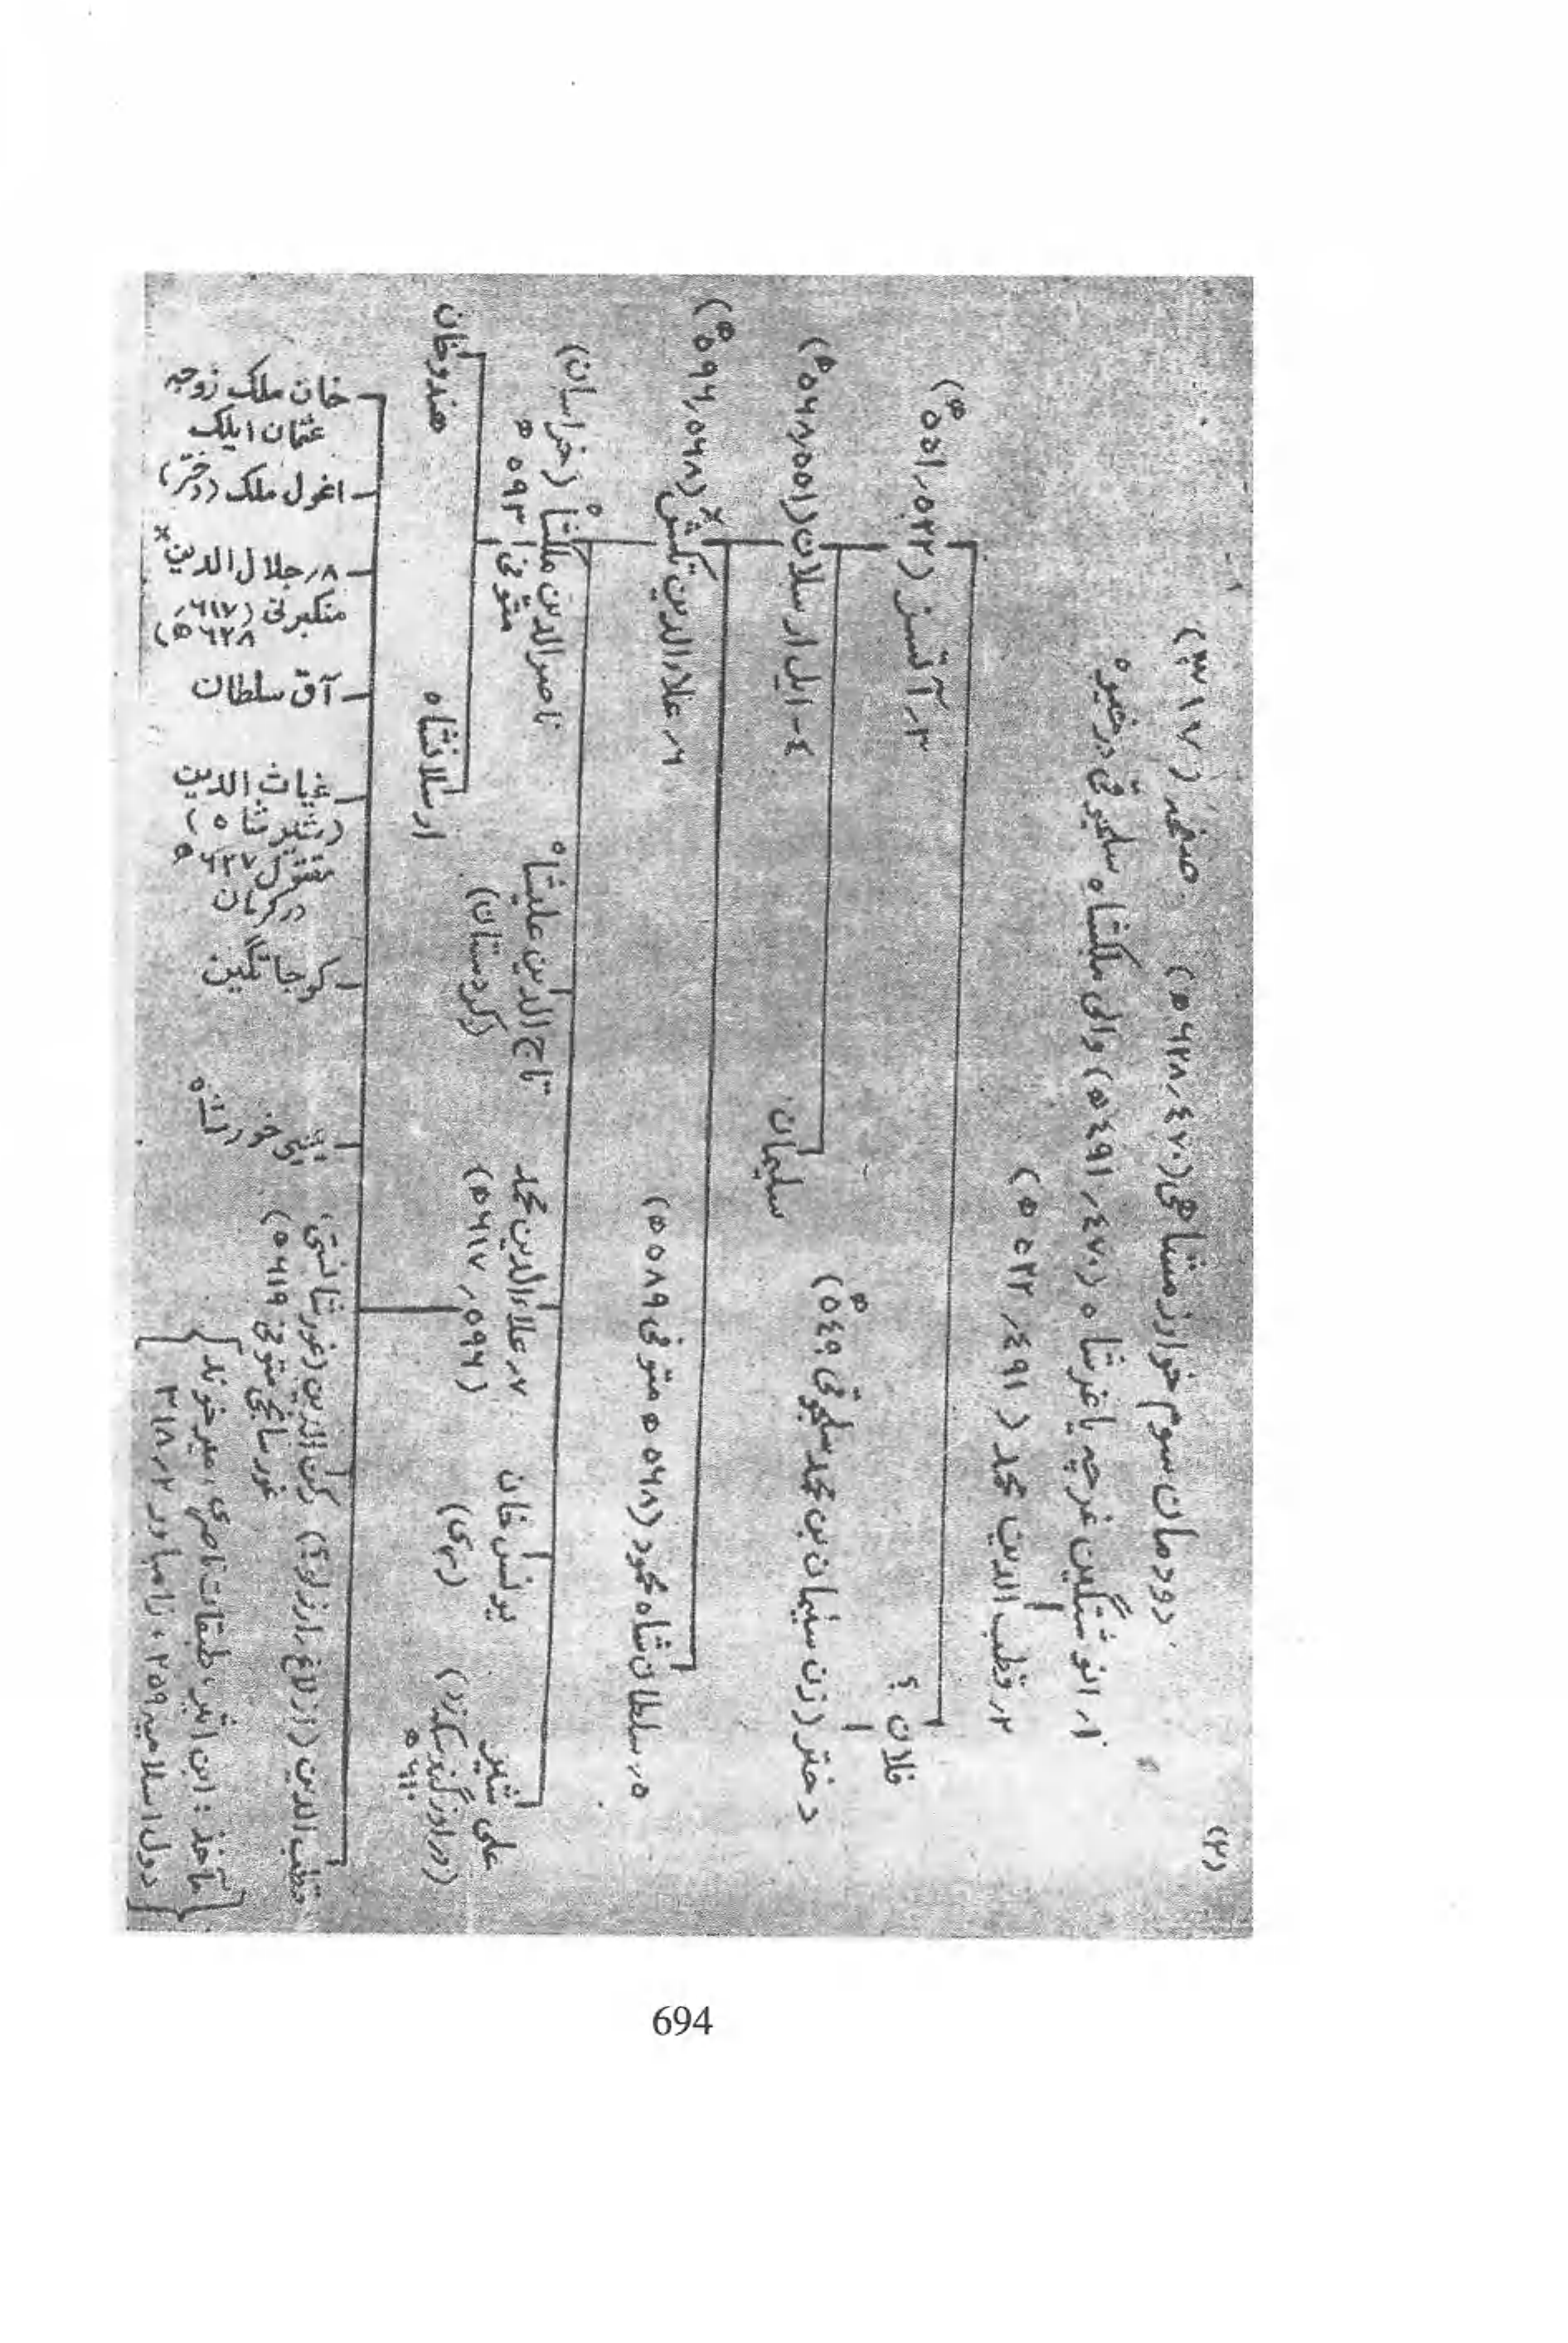 (۲)
دودمان سوم خوارزمشاهی (۴۷۰ر۶۲۸ ه) صفحه (۳۱۷)
۱ر انوشتگین غرچه یا غرشاه (۴۷۰ر۴۹۱ ه) والی ملکشاه سلجوقی در خیوه
۲ر قطب الدین محمد (۴۹۱ر۵۲۲ ه)
۳ر آتسز (۵۲۲ر۵۵۱ ه)
فلان ؟
۴- ایل ارسلان (۵۵۱ر۵۶۸ ه)
دختر (زن سلیمان بن محمد سلجوقی ۵۴۹ ه)
سلیمان
۶ر علاء الدین تکش (۵۶۸ر۵۹۶ ه)
۵ر سلطان شاه محمود (۵۶۸ ه متوفی ۵۸۹ ه)
ناصر الدین ملکشاه (خراسان)
متوفی ۵۹۳ ه
تاج الدین علیشاه
(کردستان)
۷ر علاء الدین محمد
(۵۹۶ر۶۱۷ ه)
یونس خان
(ری)
علی شیر
هندوخان
ارسلانشاه
خان ملک زوجه
عثمان ایلک
اغول ملک (دختر)
۸ر جلال الدین
منکبرنی (۶۱۷ر
۶۲۸ ه)
آق سلطان
غیاث الدین
(شیر شاه)
مقتول ۶۲۷ ه
در کرمان
کوجاتگین
یحیی خورشاه
رکن الدین (غورشانستی)
غورسانجی متوفی ۶۱۹ ه)
قطب الدین (ازلاغ، ارزلو؟)
مآخذ : ابن اثیر، طبقات ناصری، میرخوند
دول اسلامیه ۲۵۹، زامباور ۲ر۳۱۸
694